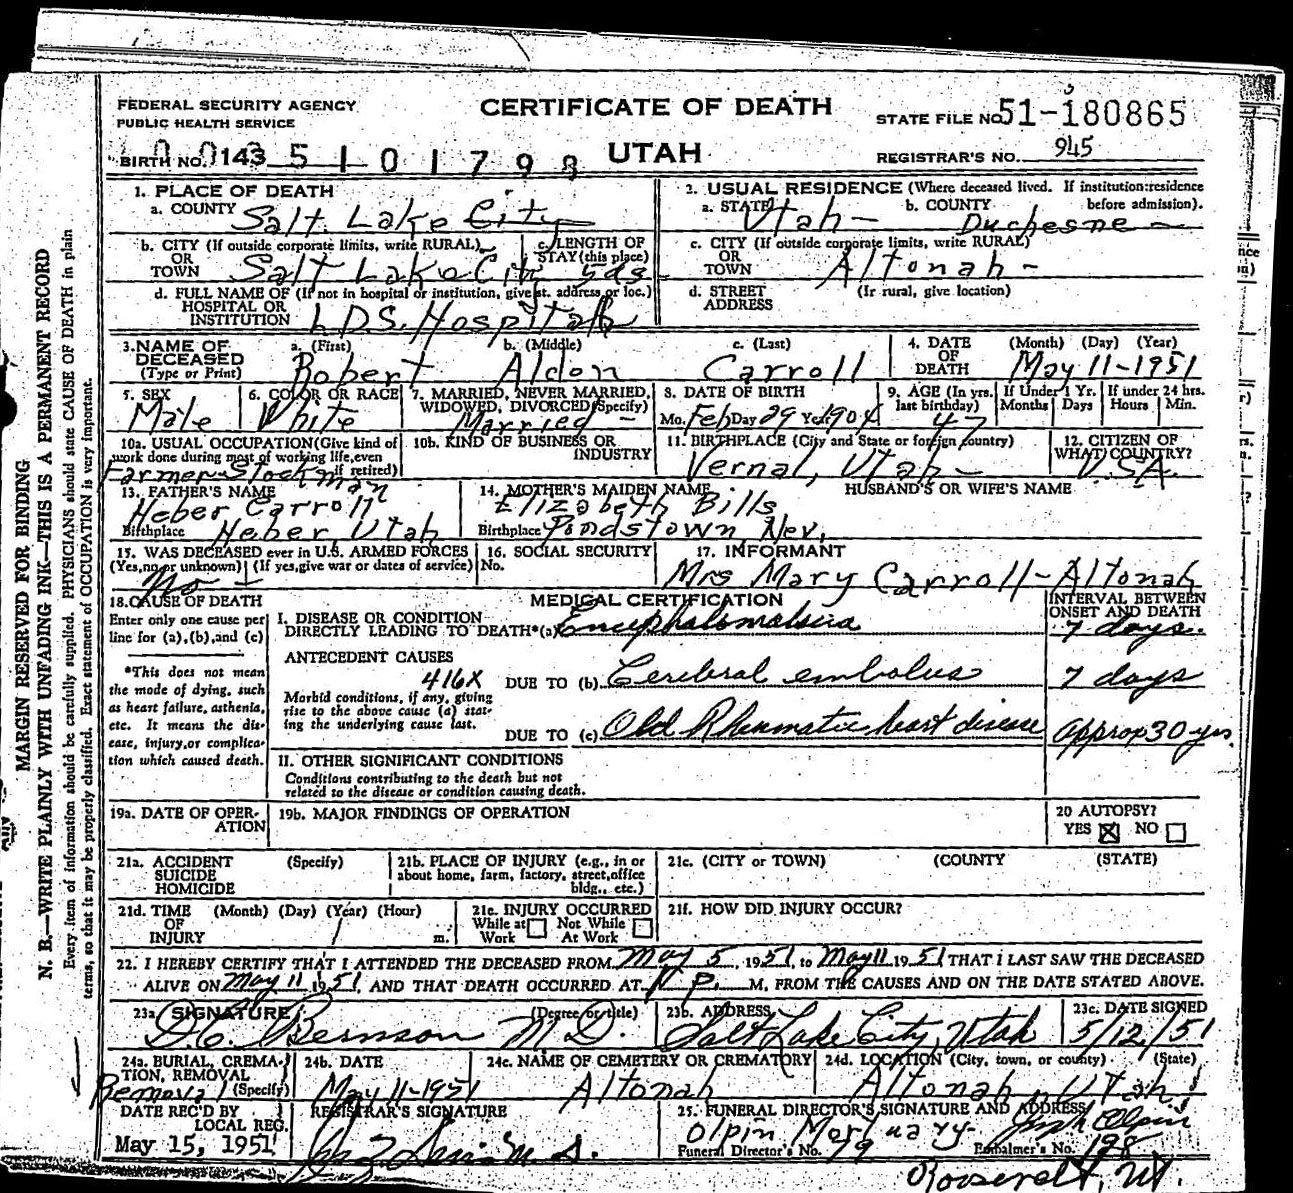 FEDERAL SECURITY AGENCY
PUBLIC HEALTH SERVICE
CERTIFICATE OF DEATH
STATE FILE NO. 51-180865
BIRTH NO. 143 5 1 0 1 7 9 8
UTAH
REGISTRAR'S NO. 945
1. PLACE OF DEATH
a. COUNTY Salt Lake City
2. USUAL RESIDENCE (Where deceased lived. If institution:residence before admission).
a. STATE Utah - b. COUNTY Duchesne -
b. CITY (If outside corporate limits, write RURAL)
OR
TOWN Salt Lake City
c. LENGTH OF
STAY (this place) 5 ds
c. CITY (If outside corporate limits, write RURAL)
OR
TOWN Altonah -
d. FULL NAME OF (If not in hospital or institution, give st. address or loc.)
HOSPITAL OR
INSTITUTION L.D.S. Hospital
d. STREET (Ir rural, give location)
ADDRESS
3. NAME OF DECEASED (Type or Print)
a. (First) b. (Middle) c. (Last)
Robert Aldon Carroll
4. DATE OF DEATH (Month) (Day) (Year)
May 11-1951
5. SEX Male
6. COLOR OR RACE White
7. MARRIED, NEVER MARRIED, WIDOWED, DIVORCED (Specify) Married -
8. DATE OF BIRTH
Mo. Feb Day 29 Yr. 1904
9. AGE (In yrs. last birthday) 47
If Under 1 Yr. Months Days
If under 24 hrs. Hours Min.
10a. USUAL OCCUPATION (Give kind of work done during most of working life, even if retired) Farmer-Stockman
10b. KIND OF BUSINESS OR INDUSTRY
11. BIRTHPLACE (City and State or foreign country) Vernal, Utah -
12. CITIZEN OF WHAT COUNTRY? U.S.A.
13. FATHER'S NAME
Heber Carroll
Birthplace Heber, Utah
14. MOTHER'S MAIDEN NAME
Elizabeth Bills
Birthplace Pondstown Nev.
HUSBAND'S OR WIFE'S NAME
15. WAS DECEASED ever in U.S. ARMED FORCES
(Yes, no or unknown) (If yes, give war or dates of service)
No -
16. SOCIAL SECURITY No.
17. INFORMANT
Mrs Mary Carroll - Altonah
18. CAUSE OF DEATH
Enter only one cause per line for (a), (b), and (c)
*This does not mean the mode of dying, such as heart failure, asthenia, etc. It means the disease, injury, or complication which caused death.
MEDICAL CERTIFICATION
INTERVAL BETWEEN ONSET AND DEATH
I. DISEASE OR CONDITION
DIRECTLY LEADING TO DEATH*(a) Encephalomalacia 7 days.
ANTECEDENT CAUSES
416X
DUE TO (b) Cerebral embolus 7 days
Morbid conditions, if any, giving rise to the above cause (a) stating the underlying cause last.
DUE TO (c) Old Rheumatic heart disease approx 30 yrs.
II. OTHER SIGNIFICANT CONDITIONS
Conditions contributing to the death but not
related to the disease or condition causing death.
19a. DATE OF OPERATION
19b. MAJOR FINDINGS OF OPERATION
20 AUTOPSY?
YES ☒ NO ☐
21a. ACCIDENT (Specify)
SUICIDE
HOMICIDE
21b. PLACE OF INJURY (e.g., in or about home, farm, factory, street, office bldg., etc.)
21c. (CITY or TOWN) (COUNTY (STATE)
21d. TIME (Month) (Day) (Year) (Hour)
OF
INJURY m.
21e. INJURY OCCURRED
While at Work ☐ Not While At Work ☐
21f. HOW DID INJURY OCCUR?
22. I HEREBY CERTIFY THAT I ATTENDED THE DECEASED FROM May 5, 1951, to May 11 1951 THAT I LAST SAW THE DECEASED
ALIVE ON May 11 1951, AND THAT DEATH OCCURRED AT P. M, FROM THE CAUSES AND ON THE DATE STATED ABOVE.
23a SIGNATURE (Degree or title)
M D.
23b. ADDRESS
Salt Lake City, Utah
23c. DATE SIGNED
5/12/51
24a. BURIAL, CREMATION, REMOVAL (Specify) Removal
24b. DATE
May 11-1951
24c. NAME OF CEMETERY OR CREMATORY
Altonah
24d. LOCATION (City, town, or county) (State)
Altonah Utah
DATE REC'D BY LOCAL REG.
May 15, 1951
REGISTRAR'S SIGNATURE
25. FUNERAL DIRECTOR'S SIGNATURE AND ADDRESS
Olpin Mortuary Olpin
Funeral Director's No. 79 Embalmer's No. 198
Roosevelt, Ut.
MARGIN RESERVED FOR BINDING
N. B.—WRITE PLAINLY WITH UNFADING INK—THIS IS A PERMANENT RECORD
Every item of information should be carefully supplied. PHYSICIANS should state CAUSE OF DEATH in plain
terms, so that it may be properly classified. Exact statement of OCCUPATION is very important.